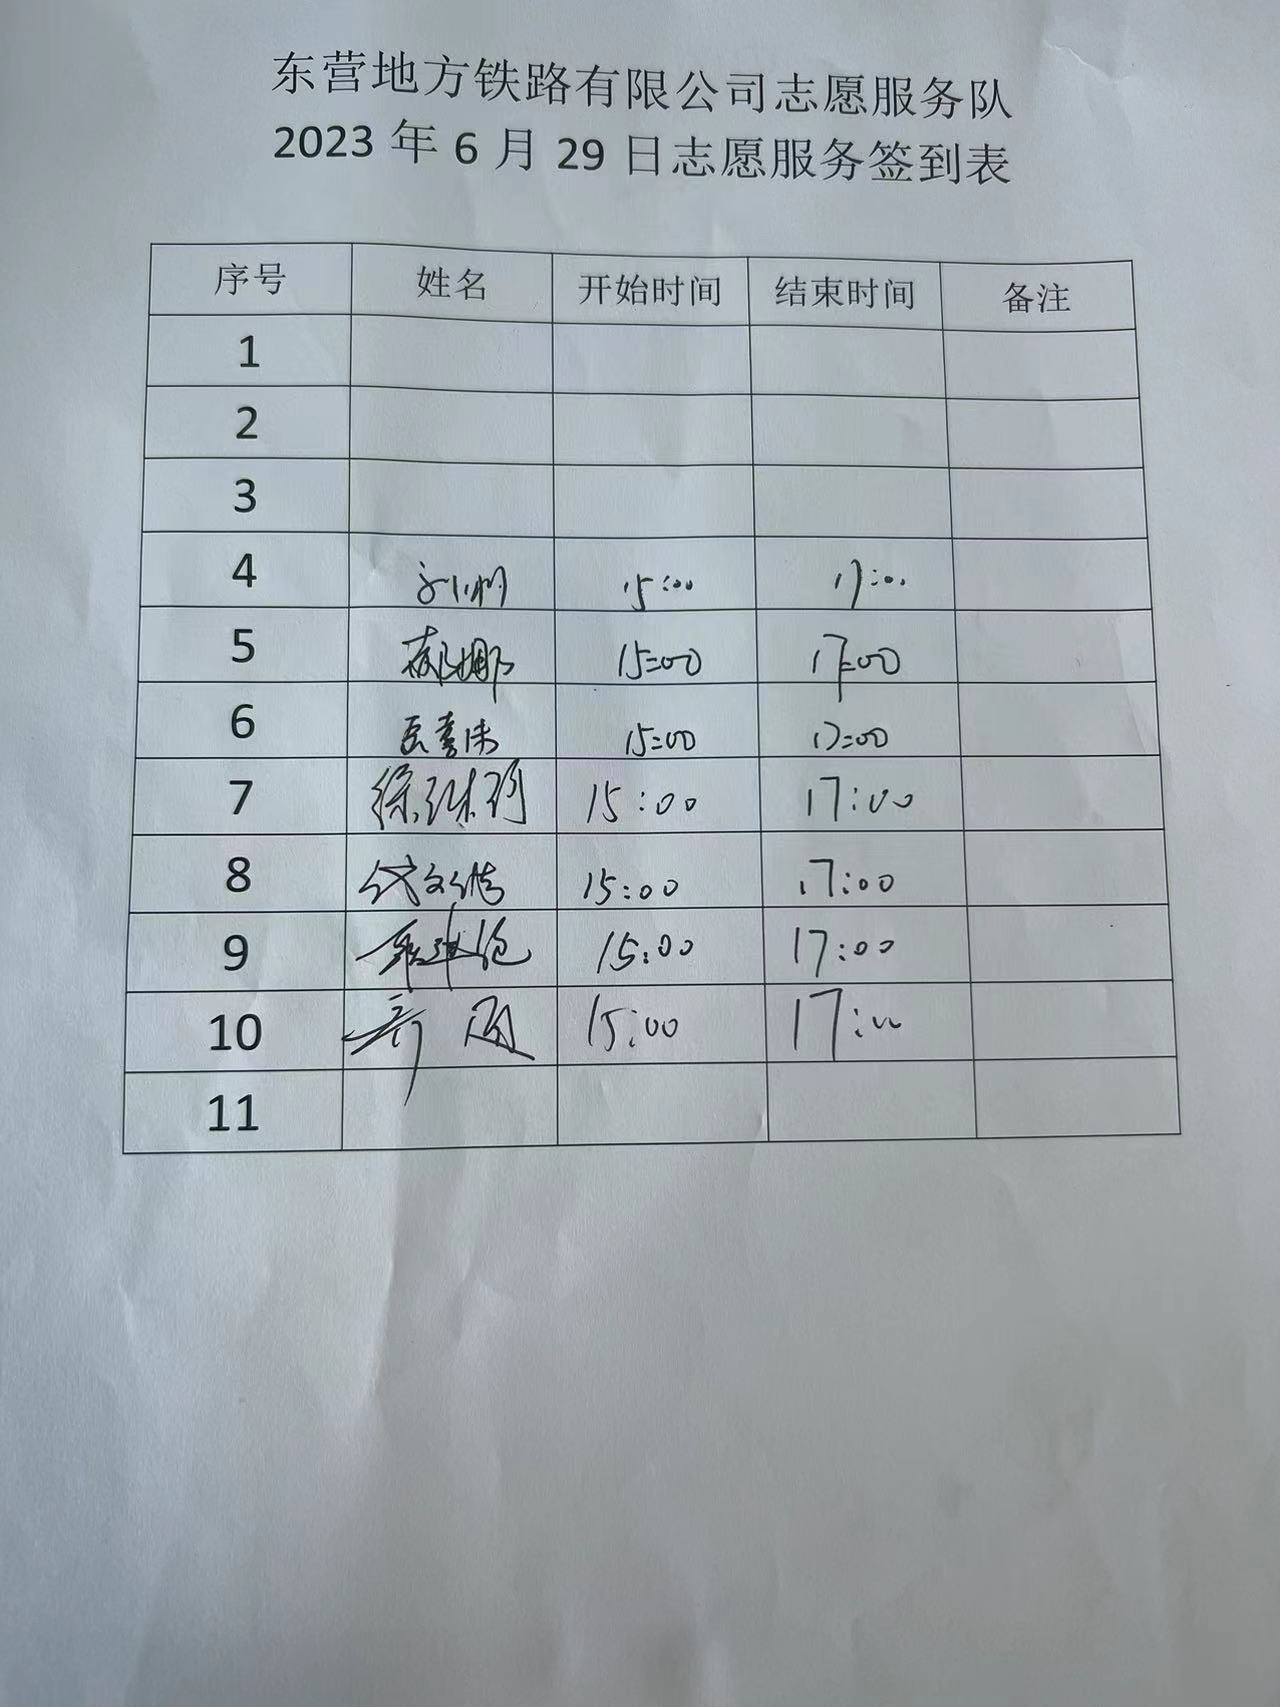 东营地方铁路有限公司志愿服务队
2023 年 6 月 29 日志愿服务签到表
序号 姓名 开始时间 结束时间 备注
1
2
3
4 15:00 17:00
5 15:00 17:00
6 15:00 17:00
7 15:00 17:00
8 15:00 17:00
9 15:00 17:00
10 15:00 17:00
11